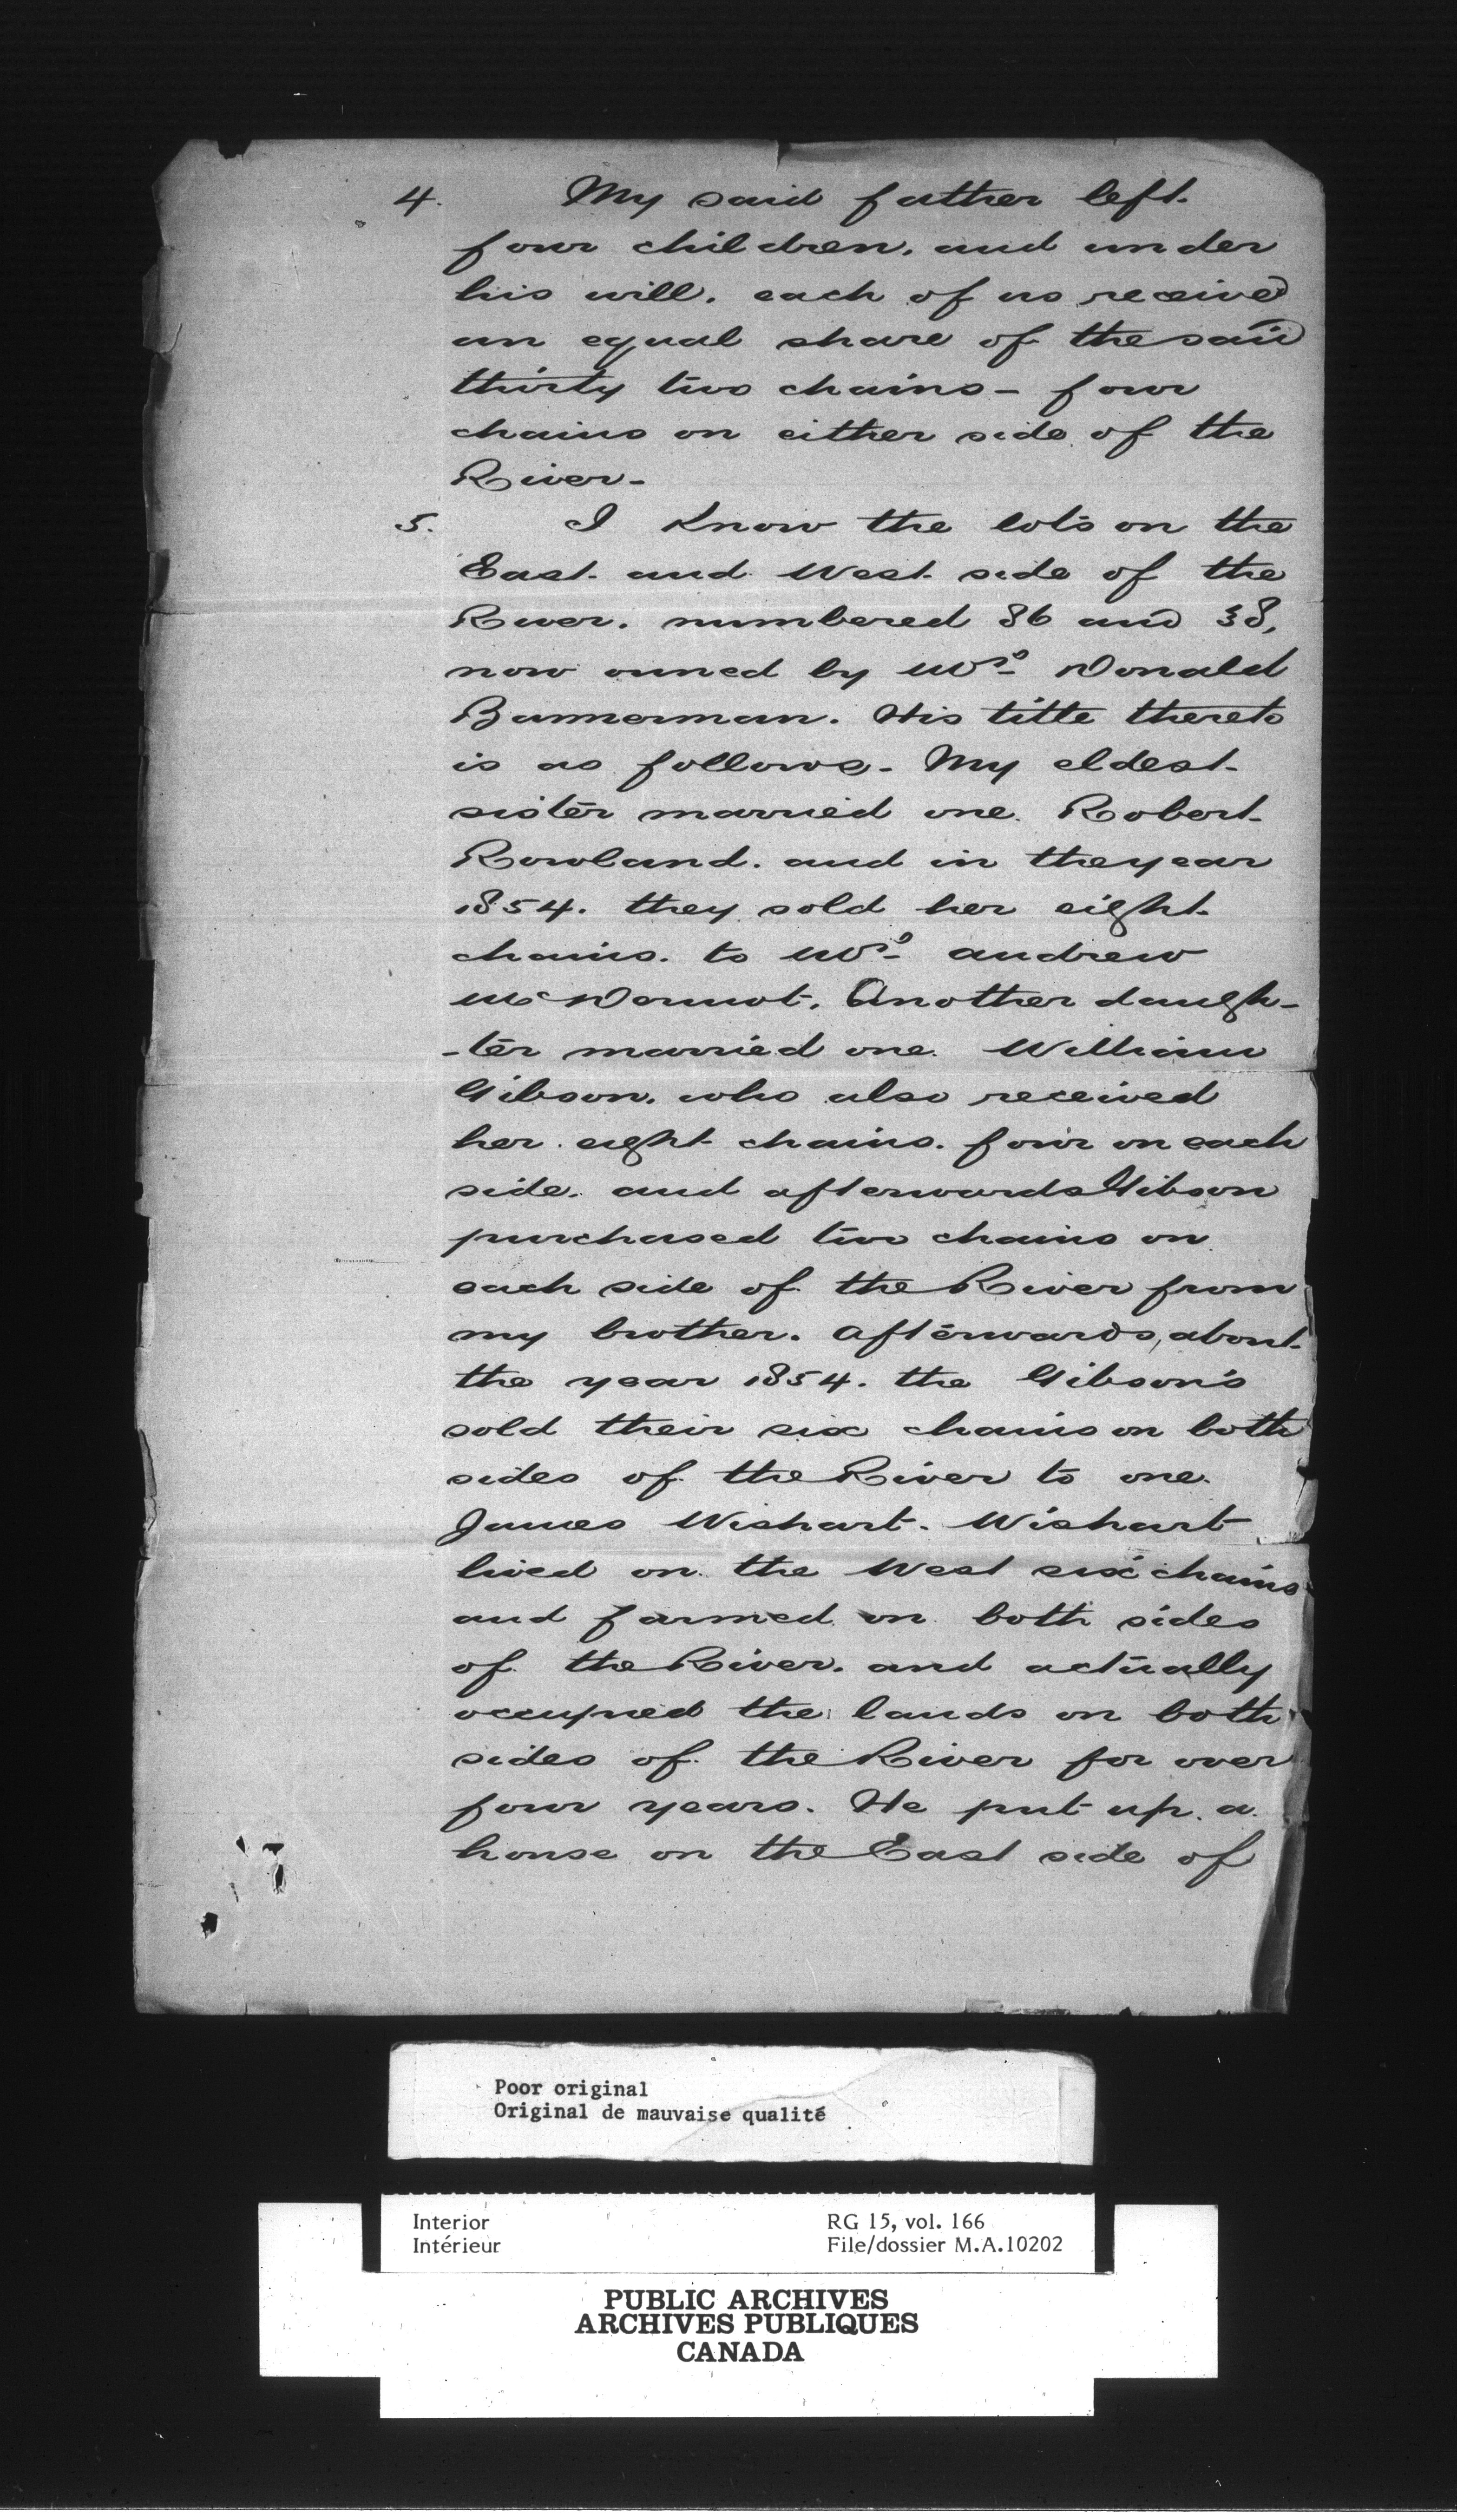 4. My said father left
four children. and under
his will. each of us received
an equal share of the said
thirty two chains - four
chains on either side of the
River -
5. I know the lots on the
East and West side of the
River. numbered 86 and 38,
now owned by Mr. Donald
Bannerman. His title thereto
is as follows - My eldest
sister married one Robert
Rowland. and in the year
1854. they sold her eight
chains. to Mr. Andrew
McDermot. Another daugh-
-ter married one William
Gibson. who also received
her eight chains. four on each
side. and afterwards Gibson
purchased two chains on
each side of the River from
my brother. Afterwards, about
the year 1854. the Gibson's
sold their six chains on both
sides of the River to one
James Wishart. Wishart
lived on the West six chains
and farmed on both sides
of the River. and actually
occupied the lands on both
sides of the River for over
four years. He put up a
house on the East side of
Poor original
Original de mauvaise qualité
Interior
Intérieur
RG 15, vol. 166
File/dossier M.A.10202
PUBLIC ARCHIVES
ARCHIVES PUBLIQUES
CANADA